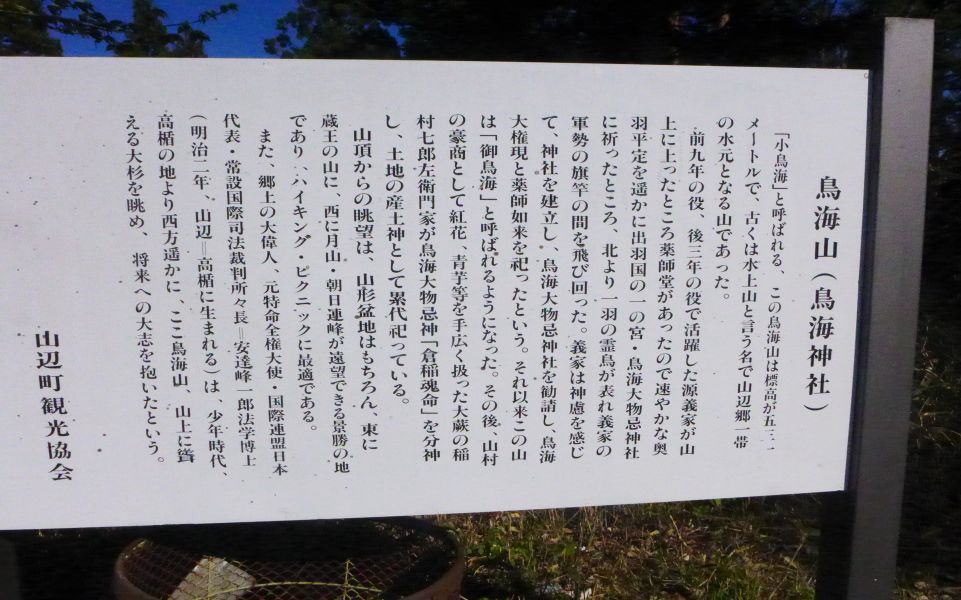 鳥海山（鳥海神社）
「小鳥海」と呼ばれる、この鳥海山は標高が五三一
メートルで、古くは水上山と言う名で山辺郷一帯
の水元となる山であった。
前九年の役、後三年の役で活躍した源義家が山
上に上ったところ薬師堂があったので速やかな奥
羽平定を遥かに出羽国の一の宮・鳥海大物忌神社
に祈ったところ、北より一羽の霊鳥が表れ義家の
軍勢の旗竿の間を飛び回った。義家は神慮を感じ
て、神社を建立し、鳥海大物忌神社を勧請し、鳥海
大権現と薬師如来を祀ったという。それ以来この山
は「御鳥海」と呼ばれるようになった。その後、山村
の豪商として紅花、青苧等を手広く扱った大蕨の稲
村七郎左衛門家が鳥海大物忌神「倉稲魂命」を分神
し、土地の産土神として累代祀っている。
山頂からの眺望は、山形盆地はもちろん、東に
蔵王の山に、西に月山・朝日連峰が遠望できる景勝の地
であり、ハイキング・ピクニックに最適である。
また、郷土の大偉人、元特命全権大使・国際連盟日本
代表・常設国際司法裁判所々長＝安達峰一郎法学博士
（明治二年、山辺＝高楯に生まれる）は、少年時代、
高楯の地より西方遥かに、ここ鳥海山、山上に聳
える大杉を眺め、将来への大志を抱いたという。
山辺町観光協会